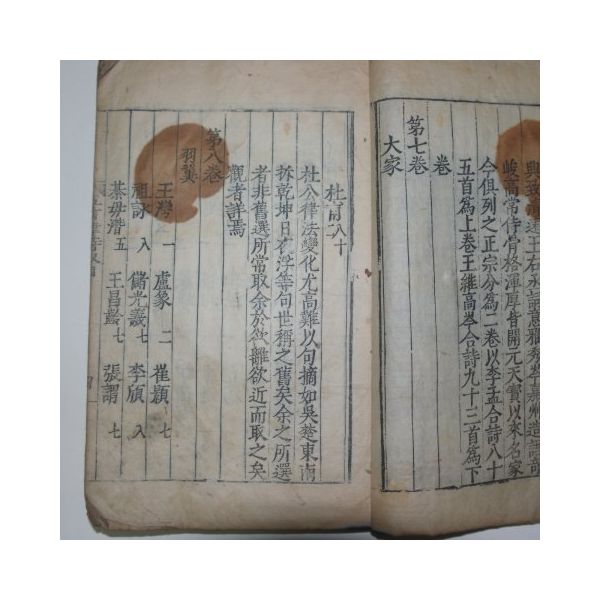 興致王右丞詞意雅秀岑嘉州造語奇
峻高常侍骨格渾厚皆開元天寶以來名家
今俱列之正宗分為一卷以李孟合詩八十
五首為上卷王維高岑合詩九十三首為下
卷
第七卷
大家
杜甫八十
杜公律法變化尤高難以句摘如吳楚東南
坼乾坤日夜浮等句世稱之舊矣余之所選
者非舊選所常取余於欲離欲近而取之矣
觀者詳焉
第八卷
羽翼
王灣 一 盧象 二 崔顥 七
祖詠 八 儲光羲 七 李頎 八
綦毋潛 五 王昌齡 七 張謂 七